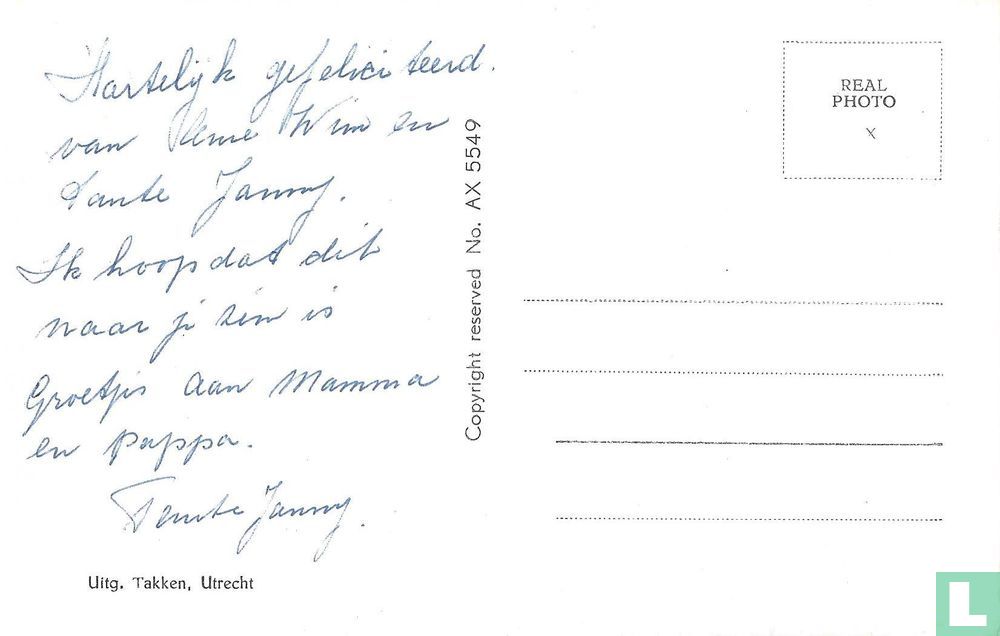 Hartelijk gefeliciteerd.
van Wim en
tante Janny.
Ik hoop dat dit
naar je zin is
Groetjes aan Mamma
en Pappa.
Tante Janny.
Uitg. Takken, Utrecht
Copyright reserved No. AX 5549
REAL
PHOTO
X
L